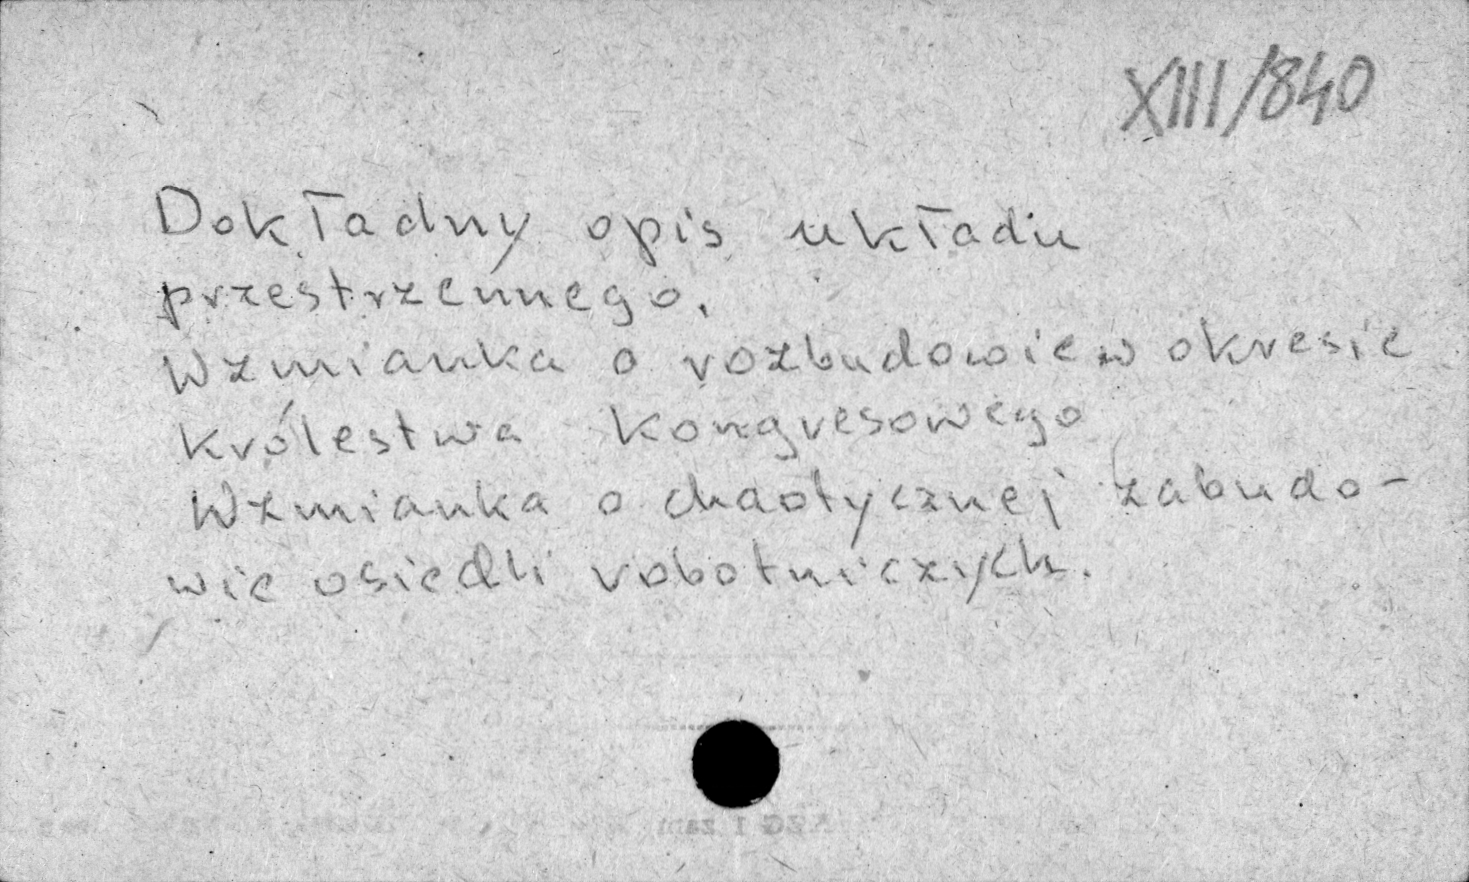 XIII/840
Dokładny opis układu
przestrzennego.
Wzmianka o rozbudowie w okresie
królestwa kongresowego
Wzmianka o chaotycznej zabudo-
wie osiedli robotniczych.